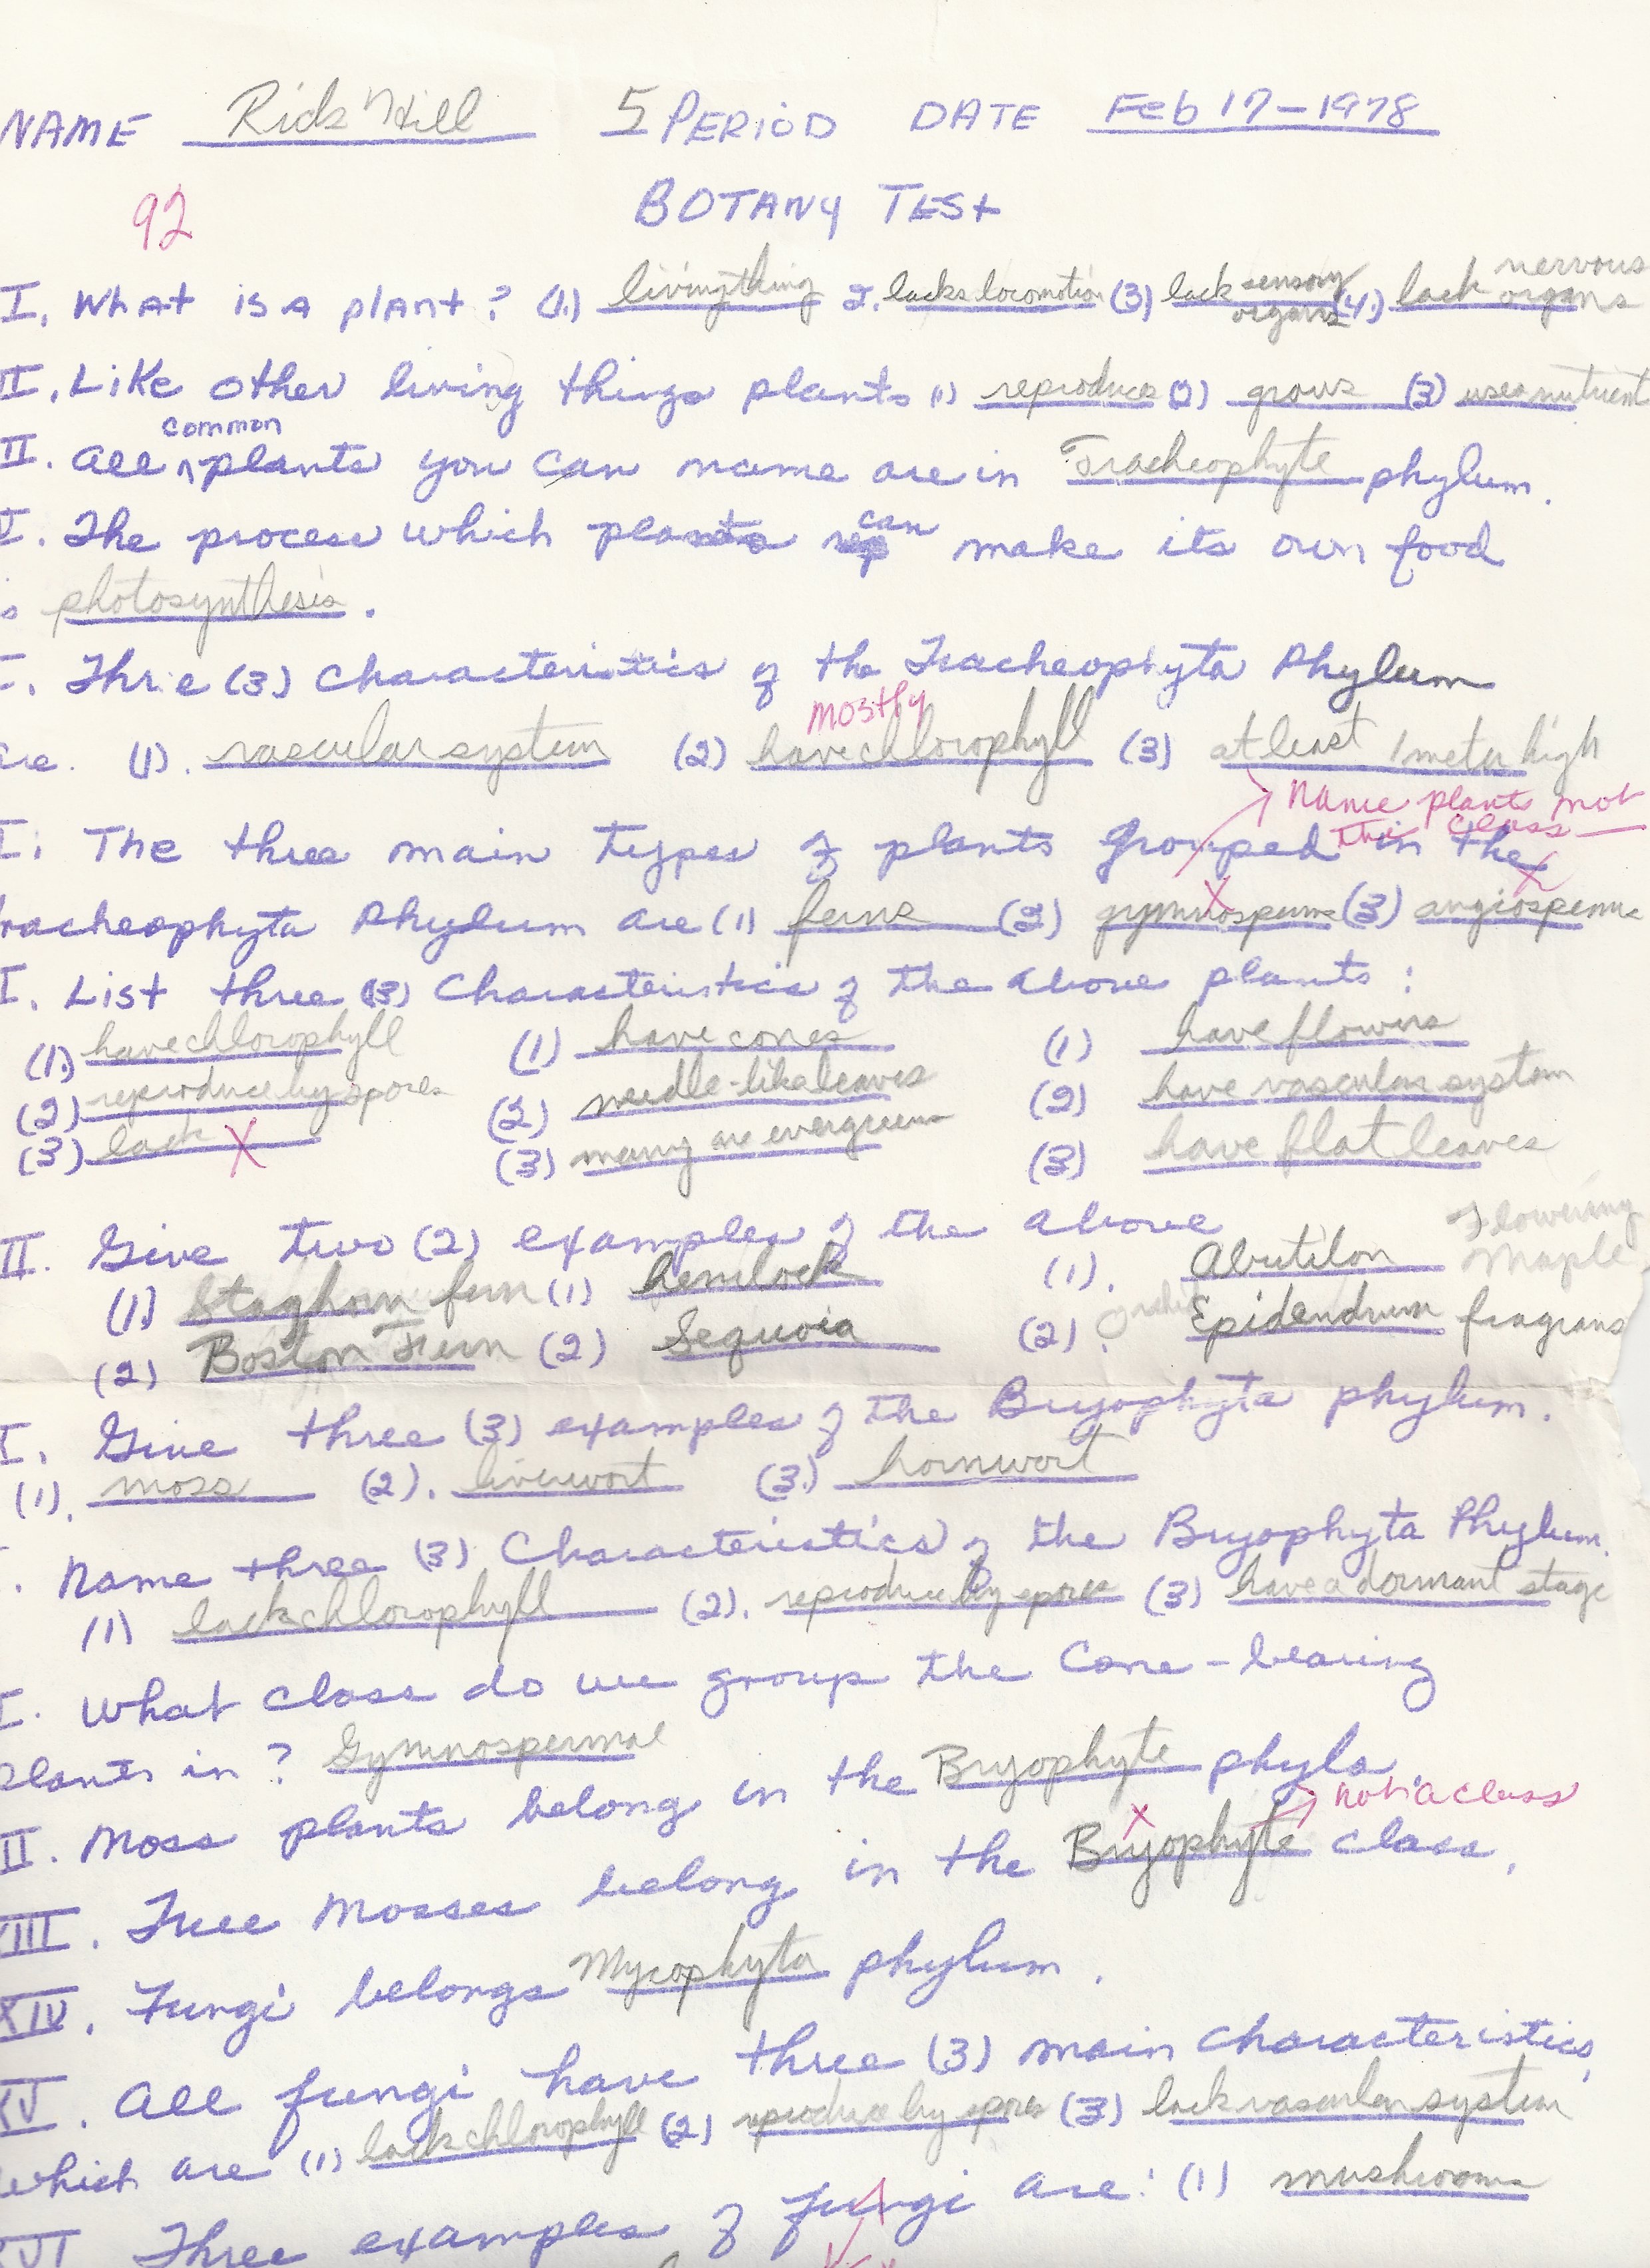 NAME Rick Hill 5 PERIOD DATE Feb 17-1978
92
BOTANY TEST
I. What is a plant? (1.) livingthing 2. lacks locomotion (3) lack sensory organs (4.) lack nervous organs
II. Like other living things plants (1) reproduce (2) grows (3) uses nutrient
II. All common plants you can name are in Tracheophyte phylum.
V. The process which plants can make its own food
s photosynthesis.
I. Three (3) Characteristics of the Tracheophyta Phylum
are. (1). vascular system (2) mostly have chlorophyll (3) at least 1 meter high
Name plant not the class
I. The three main types of plants grouped in the
racheophyta Phylum are (1) ferns (2) gymnosperms (3) angiosperms
I. List three (3) Characteristics of the above plants:
(1.) have chlorophyll (1) have cones (1) have flowers
(2) reproduce by spores (2) needle-like leaves (2) have vascular system
(3) lack X (3) many are evergreens (3) have flat leaves
II. Give two (2) examples of the above
(1.) Staghorn fern (1) hemlock (1). Abutilon Flowering Maple
(2) Boston Fern (2) Sequoia (2). Orchid Epidendrum fragrans
I. Give three (3) examples of the Bryophyta phylum.
(1). moss (2). liverwort (3.) hornwort
. Name three (3) Characteristics of the Bryophyta Phylum.
(1) lack chlorophyll (2). reproduce by spores (3) have a dormant stage
I. What class do we group the Cone-bearing
plants in? Gymnospermae
II. Moss plants belong in the Bryophyte phyla.
not a class
XIII. True Mosses belong in the Bryophyte class.
XIV. Fungi belongs Mycophyta phylum.
XV. All fungi have three (3) main characteristics,
which are (1) lack chlorophyll (2) reproduce by spores (3) lack vascular system
XVI Three examples of fungi are: (1) mushrooms